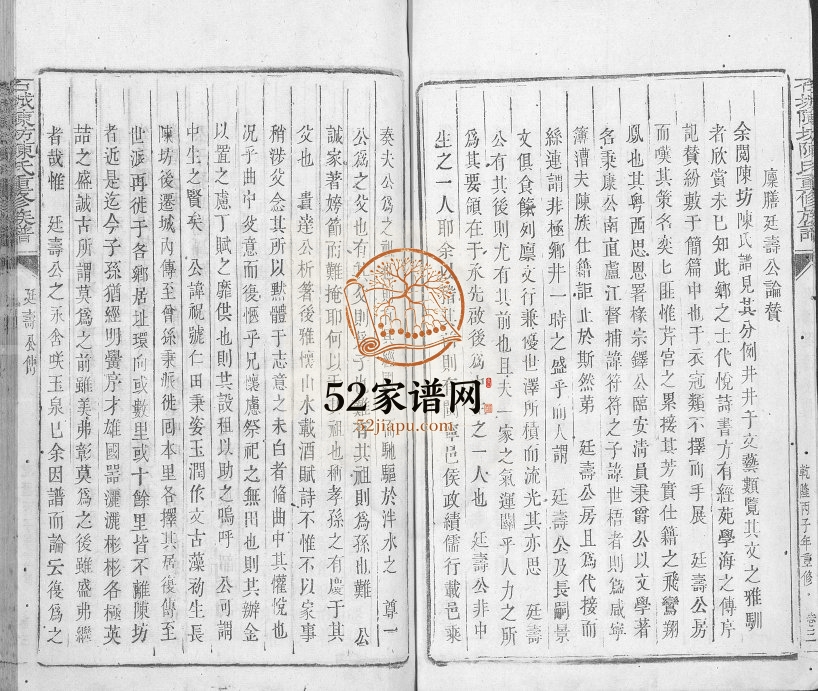 廩膳廷壽公論贊
余閱陳坊陳氏譜見其分例井井于文藝類覽其文之雅馴
者欣賞未已知此鄉之士代悅詩書方有經苑學海之傳序
記贊紛數于簡篇中也于衣冠類不擇而手展 廷壽公房
而嘆其策名奕奕匪惟芹宮之累接其芳實仕籍之飛鸞翔
鳳也其粵西思恩署椽宗鐸公臨安清員秉爵公以文學著
名秉康公南直廬江督捕諱符符之子諱世梧者則爲咸寧
簿漕夫陳族仕籍詎止於斯然第 廷壽公房且爲代接而
絲連謂非極鄉井一時之盛乎而人謂 廷壽公及長嗣景
文俱食餼列廩文行兼優世澤所積而流光其亦思 廷壽
公有其後則尤有其前也且夫一家之氣運關乎人力之所
爲其要領在于承先啟後爲 之一人也 廷壽公非中
生之一人耶余 邑侯政績儒行載邑乘
泰夫公爲之祖 馳驅於泮水之 尊一
公爲之父也有 有其祖則爲孫也難 公
誠家著姱節而難掩耶何以 祖也稱孝孫之有慶于其
父也 貴達公析箸後雅懷山水載酒賦詩不惟不以家事
稍涉父念其所以默體于志意之未白者脩曲中其懽悅也
況乎曲中父意而復懷乎兄懷慮祭祀之無田也則其辦金
以置之慮丁賦之靡供也則其設租以助之嗚呼 公可謂
中生之賢矣 公諱視號仁田秉姿玉潤作文古藻初生長
陳坊後遷城内傳至曾孫秉派徙回本里各擇其居後傳至
世派再徙于各鄉居址環向或數里或十餘里皆不離陳坊
者近是迄今子孫猶經明黌序才雄國器灑灑彬彬各極英
喆之盛誠古所謂莫爲之前雖美弗彰莫爲之後雖盛弗繼
者哉惟 廷壽公之承含咲玉泉已余因譜而論云復爲之
石城陳坊陳氏重修族譜
廷壽公傳
乾隆丙子年重修
卷三
52家谱网
52jiapu.com